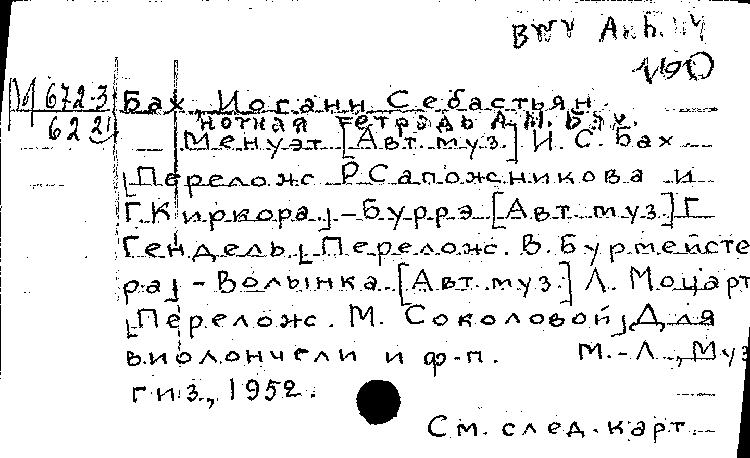 BWV Anh. 114
160
М 672-3
62 21
Бах, Иоганн Себастьян.
нотная тетрадь А.М. Бах.
Менуэт [Авт. муз.] И. С. Бах
[Перелож. Р. Сапожникова и
Г. Киркора] - Буррэ [Авт. муз.] Г.
Гендель [Перелож. В. Бурмейсте
ра] - Волынка. [Авт. муз.] Л. Моцарт
[Перелож. М. Соколовой] Для
виолончели и ф-п. М.-Л., Муз
гиз., 1952.
См. след. карт.